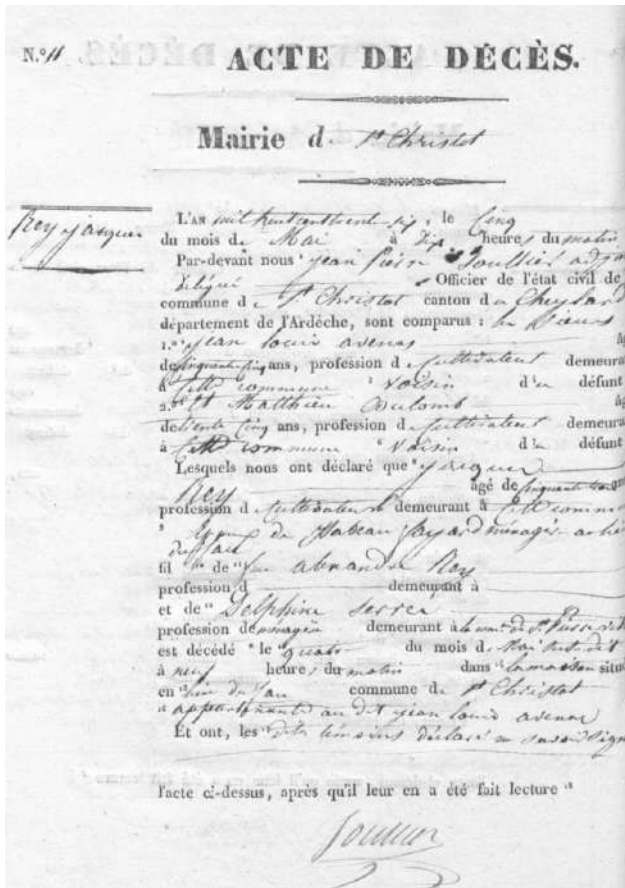 N.° 11 ACTE DE DÉCÈS.
Mairie de St Christol
Rey jacques
L'AN mil huit cent trent six, le cinq
du mois de Mai à dix heures du matin
Par-devant nous jean pierre Soullier adjoi
délégué Officier de l'état civil de
commune de St Christol canton du Cheylard
département de l'Ardèche, sont comparus : les sieurs
1.° jean louis avenas âg
de cinquante cinq ans, profession de cultivateur demeura
à cette commune voisin du défunt
2.° et Matthieu Coulomb âg
de trente cinq ans, profession de cultivateur demeura
à cette commune voisin du défunt
Lesquels nous ont déclaré que jacques
Rey âgé de cinquante
profession de cultivateur demeurant à cette commune
époux de fayard ménagère
fil de feu alexandre Rey
profession d demeurant à
et de Delphine Serre
profession de ménagère demeurant à la com. de St Pierre
est décédé le quatre du mois de Mai sus dit
à neuf heures du matin dans la maison situé
en lieu du commune de St Christol
appartenante au dit jean louis avenas
Et ont, les dits témoins déclaré ne savoir signe
l'acte ci-dessus, après qu'il leur en a été fait lecture
Soullier